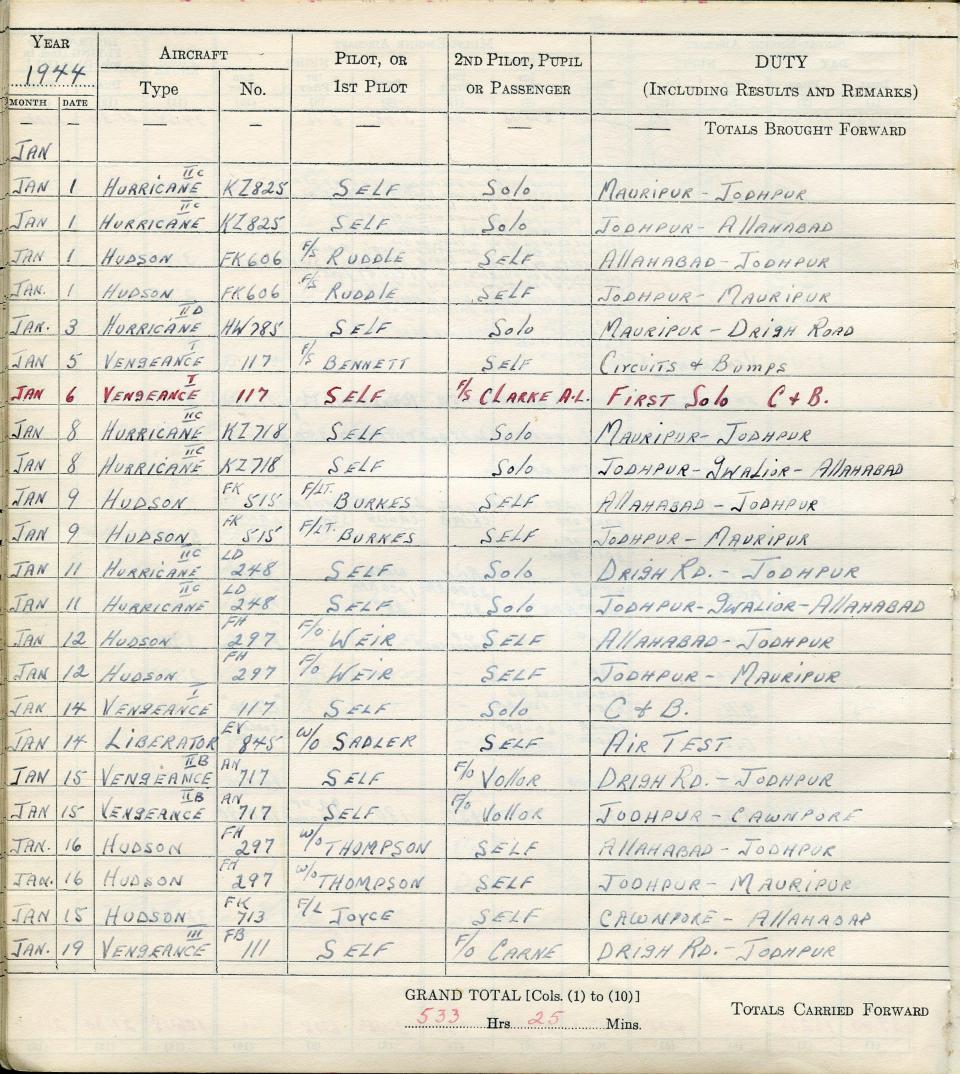 YEAR 1944 AIRCRAFT PILOT, OR 1ST PILOT 2ND PILOT, PUPIL OR PASSENGER DUTY (INCLUDING RESULTS AND REMARKS)
MONTH DATE Type No.
— — — — — — — TOTALS BROUGHT FORWARD
JAN
JAN 1 HURRICANE IIC KZ825 SELF Solo MAURIPUR - JODHPUR
JAN 1 HURRICANE IIC KZ825 SELF Solo JODHPUR - ALLAHABAD
JAN 1 HUDSON FK606 F/S RUDDLE SELF ALLAHABAD - JODHPUR
JAN. 1 HUDSON FK606 F/S RUDDLE SELF JODHPUR - MAURIPUR
JAN. 3 HURRICANE IID HW785 SELF Solo MAURIPUR - DRIGH ROAD
JAN 5 VENGEANCE I 117 F/S BENNETT SELF CIRCUITS & BUMPS
JAN 6 VENGEANCE I 117 SELF F/S CLARKE A.L. FIRST SOLO C & B.
JAN 8 HURRICANE IIC KZ718 SELF Solo MAURIPUR - JODHPUR
JAN 8 HURRICANE IIC KZ718 SELF Solo JODHPUR - GWALIOR - ALLAHABAD
JAN 9 HUDSON FK 515 F/LT. BURKES SELF ALLAHABAD - JODHPUR
JAN 9 HUDSON FK 515 F/LT. BURKES SELF JODHPUR - MAURIPUR
JAN 11 HURRICANE IIC LD 248 SELF Solo DRIGH RD. - JODHPUR
JAN 11 HURRICANE IIC LD 248 SELF Solo JODHPUR - GWALIOR - ALLAHABAD
JAN 12 HUDSON FH 297 F/O WEIR SELF ALLAHABAD - JODHPUR
JAN 12 HUDSON FH 297 F/O WEIR SELF JODHPUR - MAURIPUR
JAN 14 VENGEANCE I 117 SELF Solo C & B.
JAN 14 LIBERATOR EV 845 W/O SADLER SELF AIR TEST
JAN 15 VENGEANCE IIB AN 717 SELF F/O VOLLOR DRIGH RD. - JODHPUR
JAN 15 VENGEANCE IIB AN 717 SELF F/O VOLLOR JODHPUR - CAWNPORE
JAN. 16 HUDSON FH 297 W/O THOMPSON SELF ALLAHABAD - JODHPUR
JAN. 16 HUDSON FH 297 W/O THOMPSON SELF JODHPUR - MAURIPUR
JAN 15 HUDSON FK 713 F/L JOYCE SELF CAWNPORE - ALLAHABAD
JAN. 19 VENGEANCE III FB 111 SELF F/O CARNE DRIGH RD. - JODHPUR
GRAND TOTAL [Cols. (1) to (10)] TOTALS CARRIED FORWARD
533 Hrs. 25 Mins.